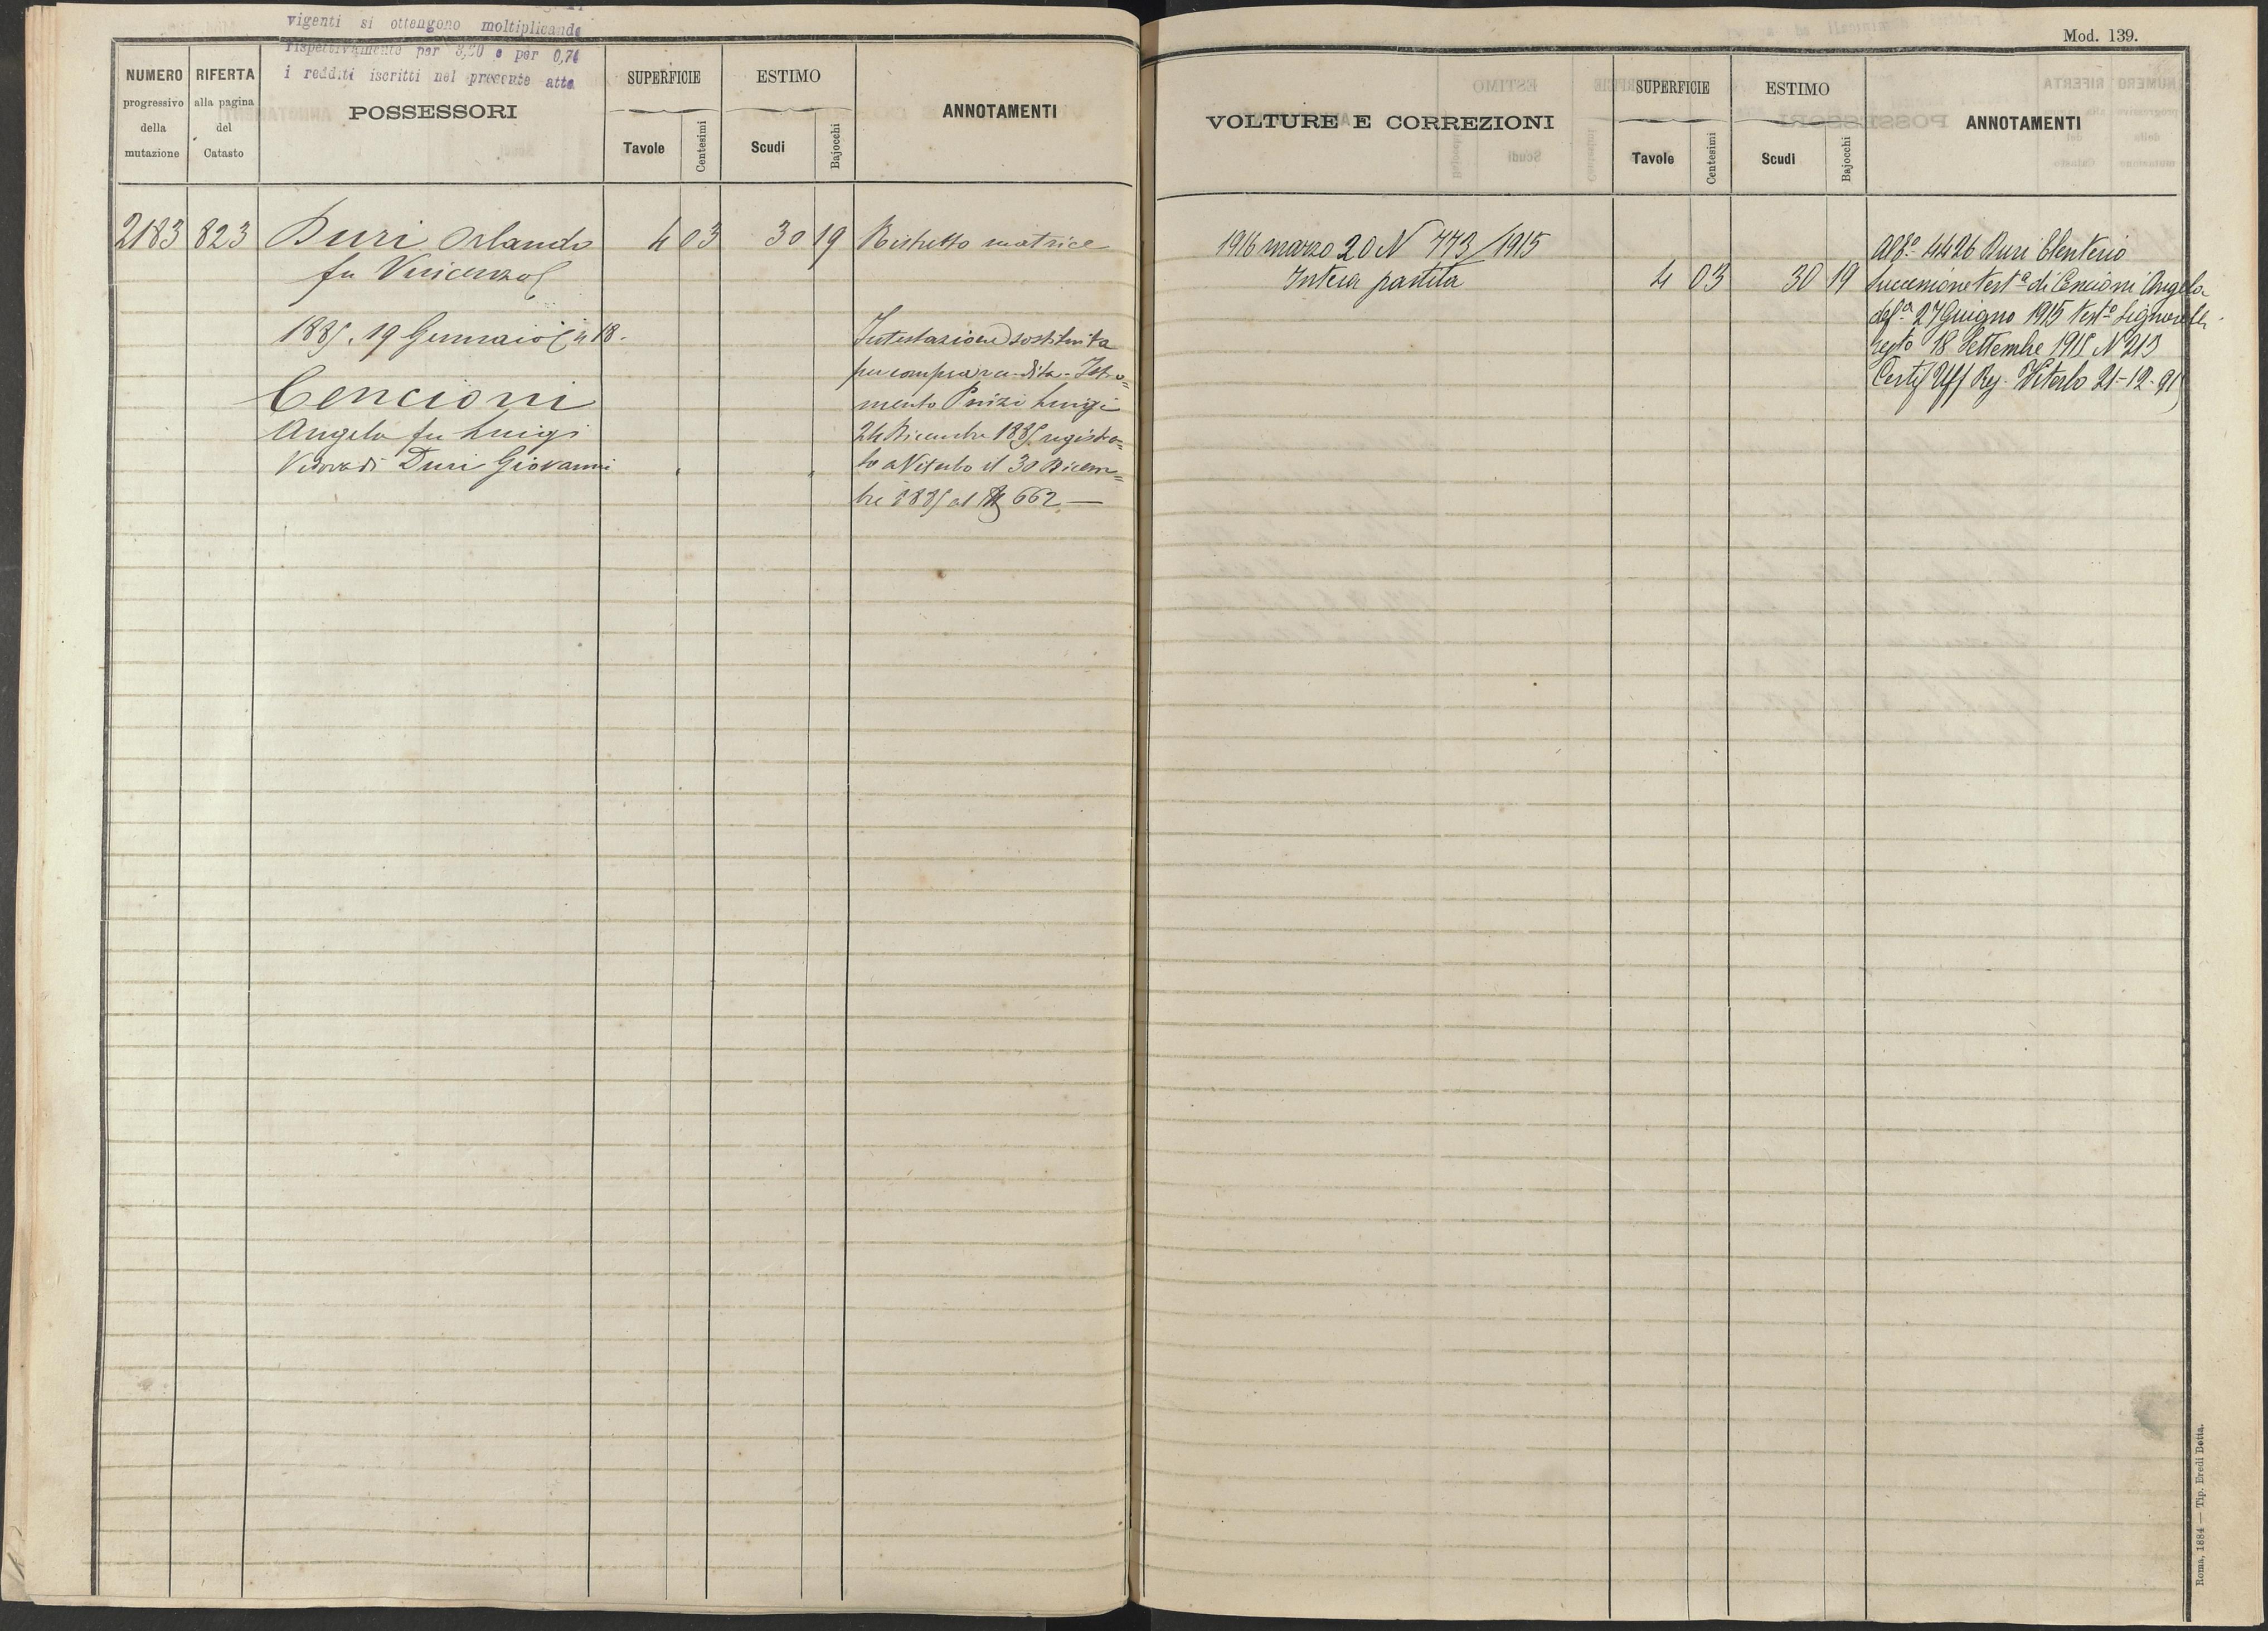 vigenti si ottengono moltiplicando
rispettivamente per 3,20 e per 0,74
i redditi iscritti nel presente atto
Mod. 139.
NUMERO
progressivo
della
mutazione
RIFERTA
alla pagina
del
Catasto
POSSESSORI
SUPERFICIE
Tavole
Centesimi
ESTIMO
Scudi
Bajocchi
ANNOTAMENTI
2183 823 Duri Orlando 4 03 30 19 Ristretto matrice
fu Vincenzo
1885, 19 Gennaio n 18.
Cencioni
Angela fu Luigi
Vedova di Duri Giovanni
Intestazione sostituita
per compra vendita - Istro=
mento Parizi Luigi
24 Dicembre 1885 registra=
to a Viterbo il 30 Dicem=
bre 1885 al N 662 —
VOLTURE E CORREZIONI
SUPERFICIE
Tavole
Centesimi
ESTIMO
Scudi
Bajocchi
ANNOTAMENTI
1916 marzo 20 N 773/1915
Intera partita 4 03 30 19
All'º 4426 Duri Elenterio
successione testª di Cencioni Angela
defª 27 Giugno 1915 testº Signorelli
regtº 18 Settembre 1915 N 213
Certif Uff Reg. Viterbo 21-12-915
Roma, 1884 — Tip. Eredi Botta.